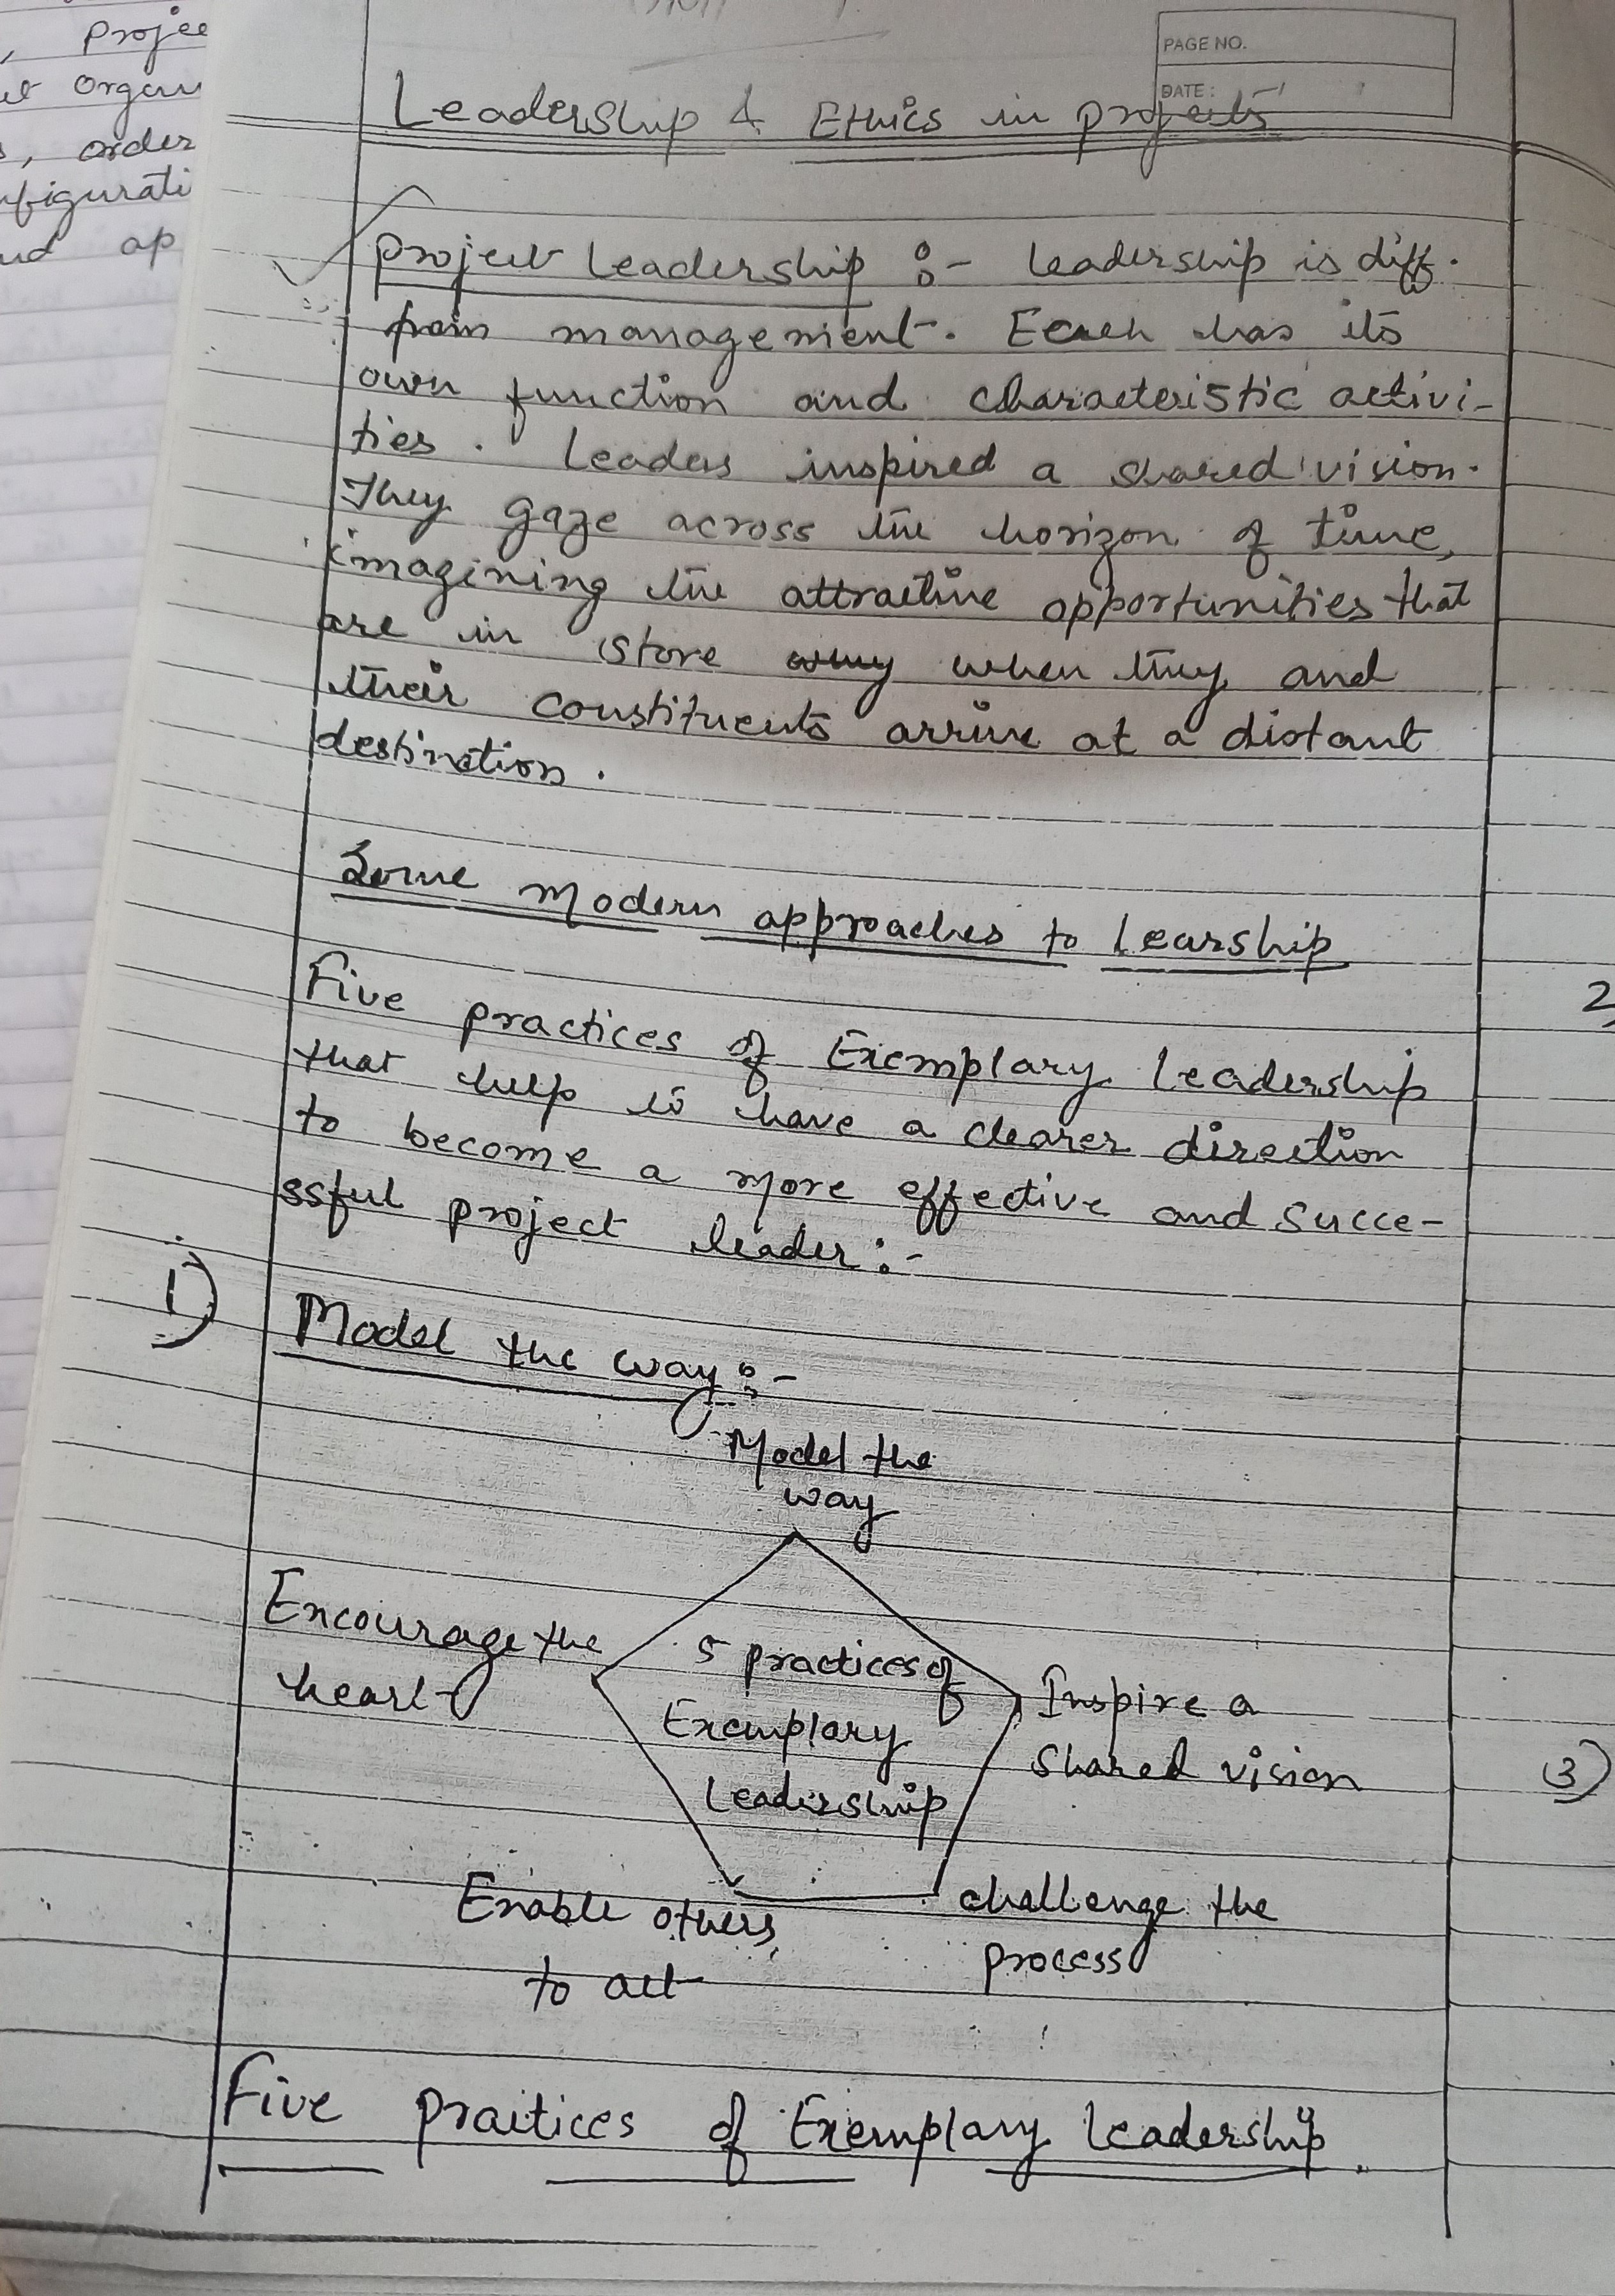 PAGE NO.
DATE :
Leadership & Ethics in projects
project leadership :- leadership is diff.
from management. Each has its
own function and characteristic activi-
ties. Leaders inspired a shared vision.
They gaze across the horizon of time,
imagining the attractive opportunities that
are in store when they and
their constituents arrive at a distant
destination.
Some modern approaches to Learship
Five practices of Exemplary leadership
that help to have a clearer direction
to become a more effective and succe-
ssful project leader :-
1) Model the way :-
Model the
way
Encourage the
heart
5 practices of
Exemplary
leadership
Inspire a
shared vision
Enable others
to act
challenge the
process
Five practices of Exemplary leadership.
2)
3)
, projec
organ
, order
figurati
ap